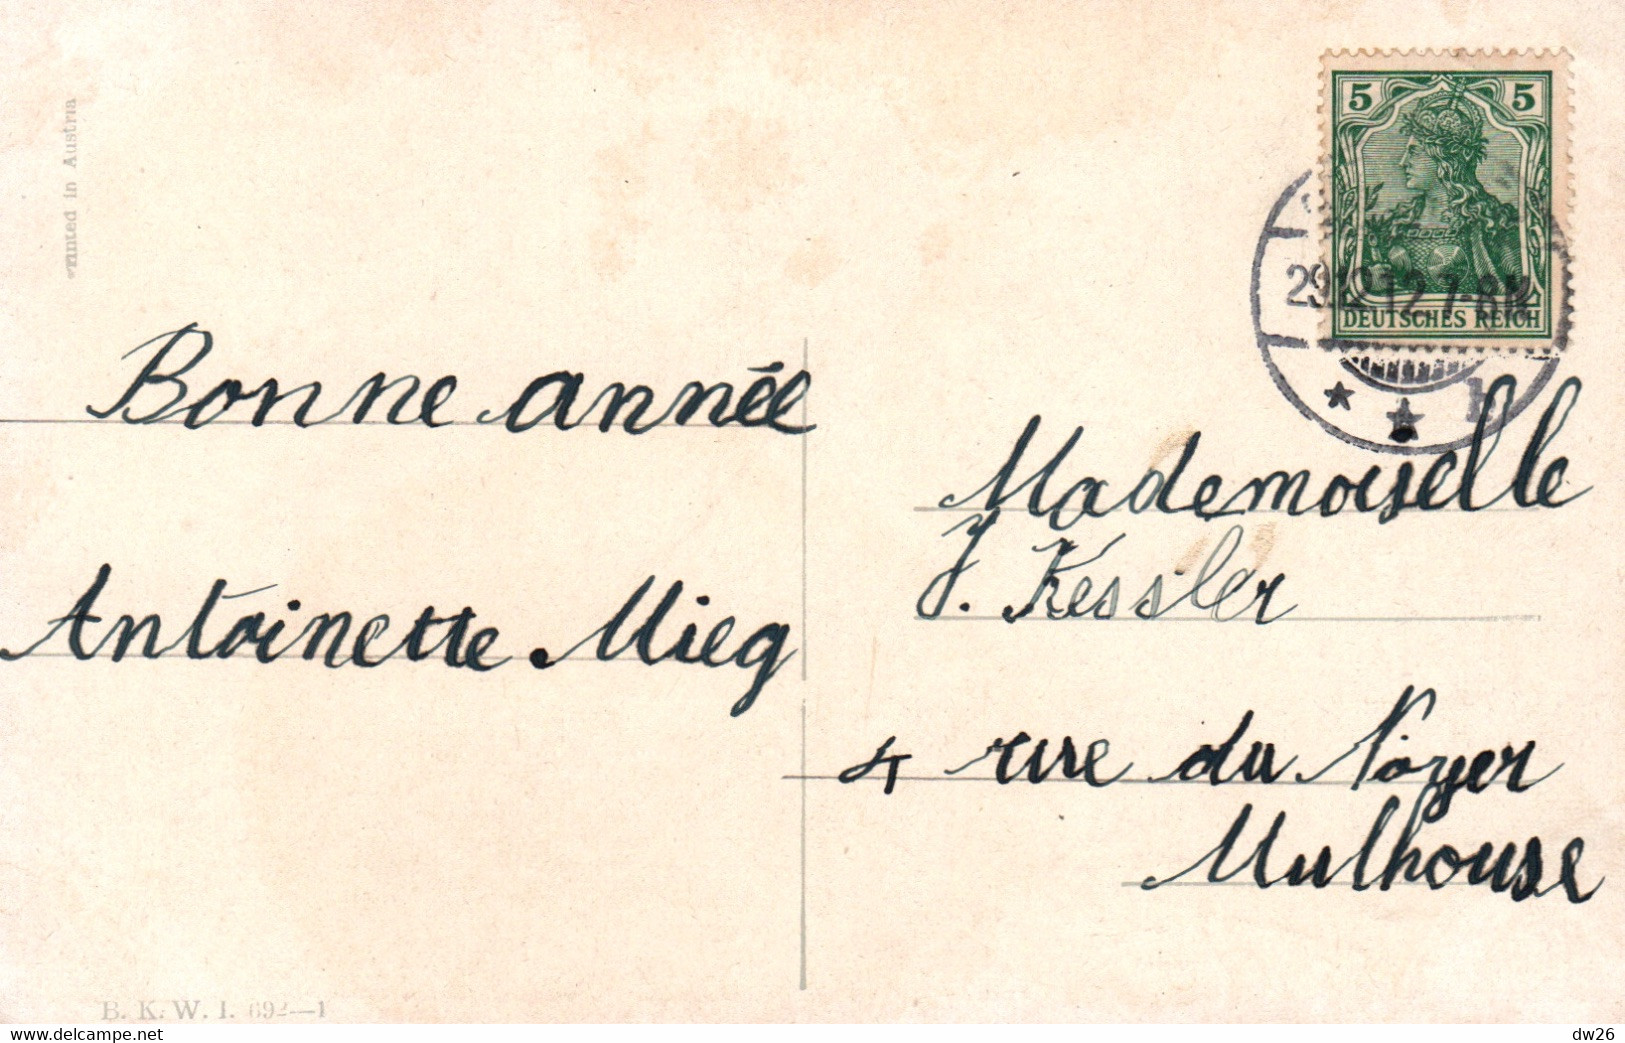 Printed in Austria
5 5
29.12.12.7-8N
DEUTSCHES REICH
b
Bonne année
Antoinette Mieg
Mademoiselle
J. Kessler
4 rue du Noyer
Mulhouse
B. K. W. I. 692—1
www.delcampe.net
dw26